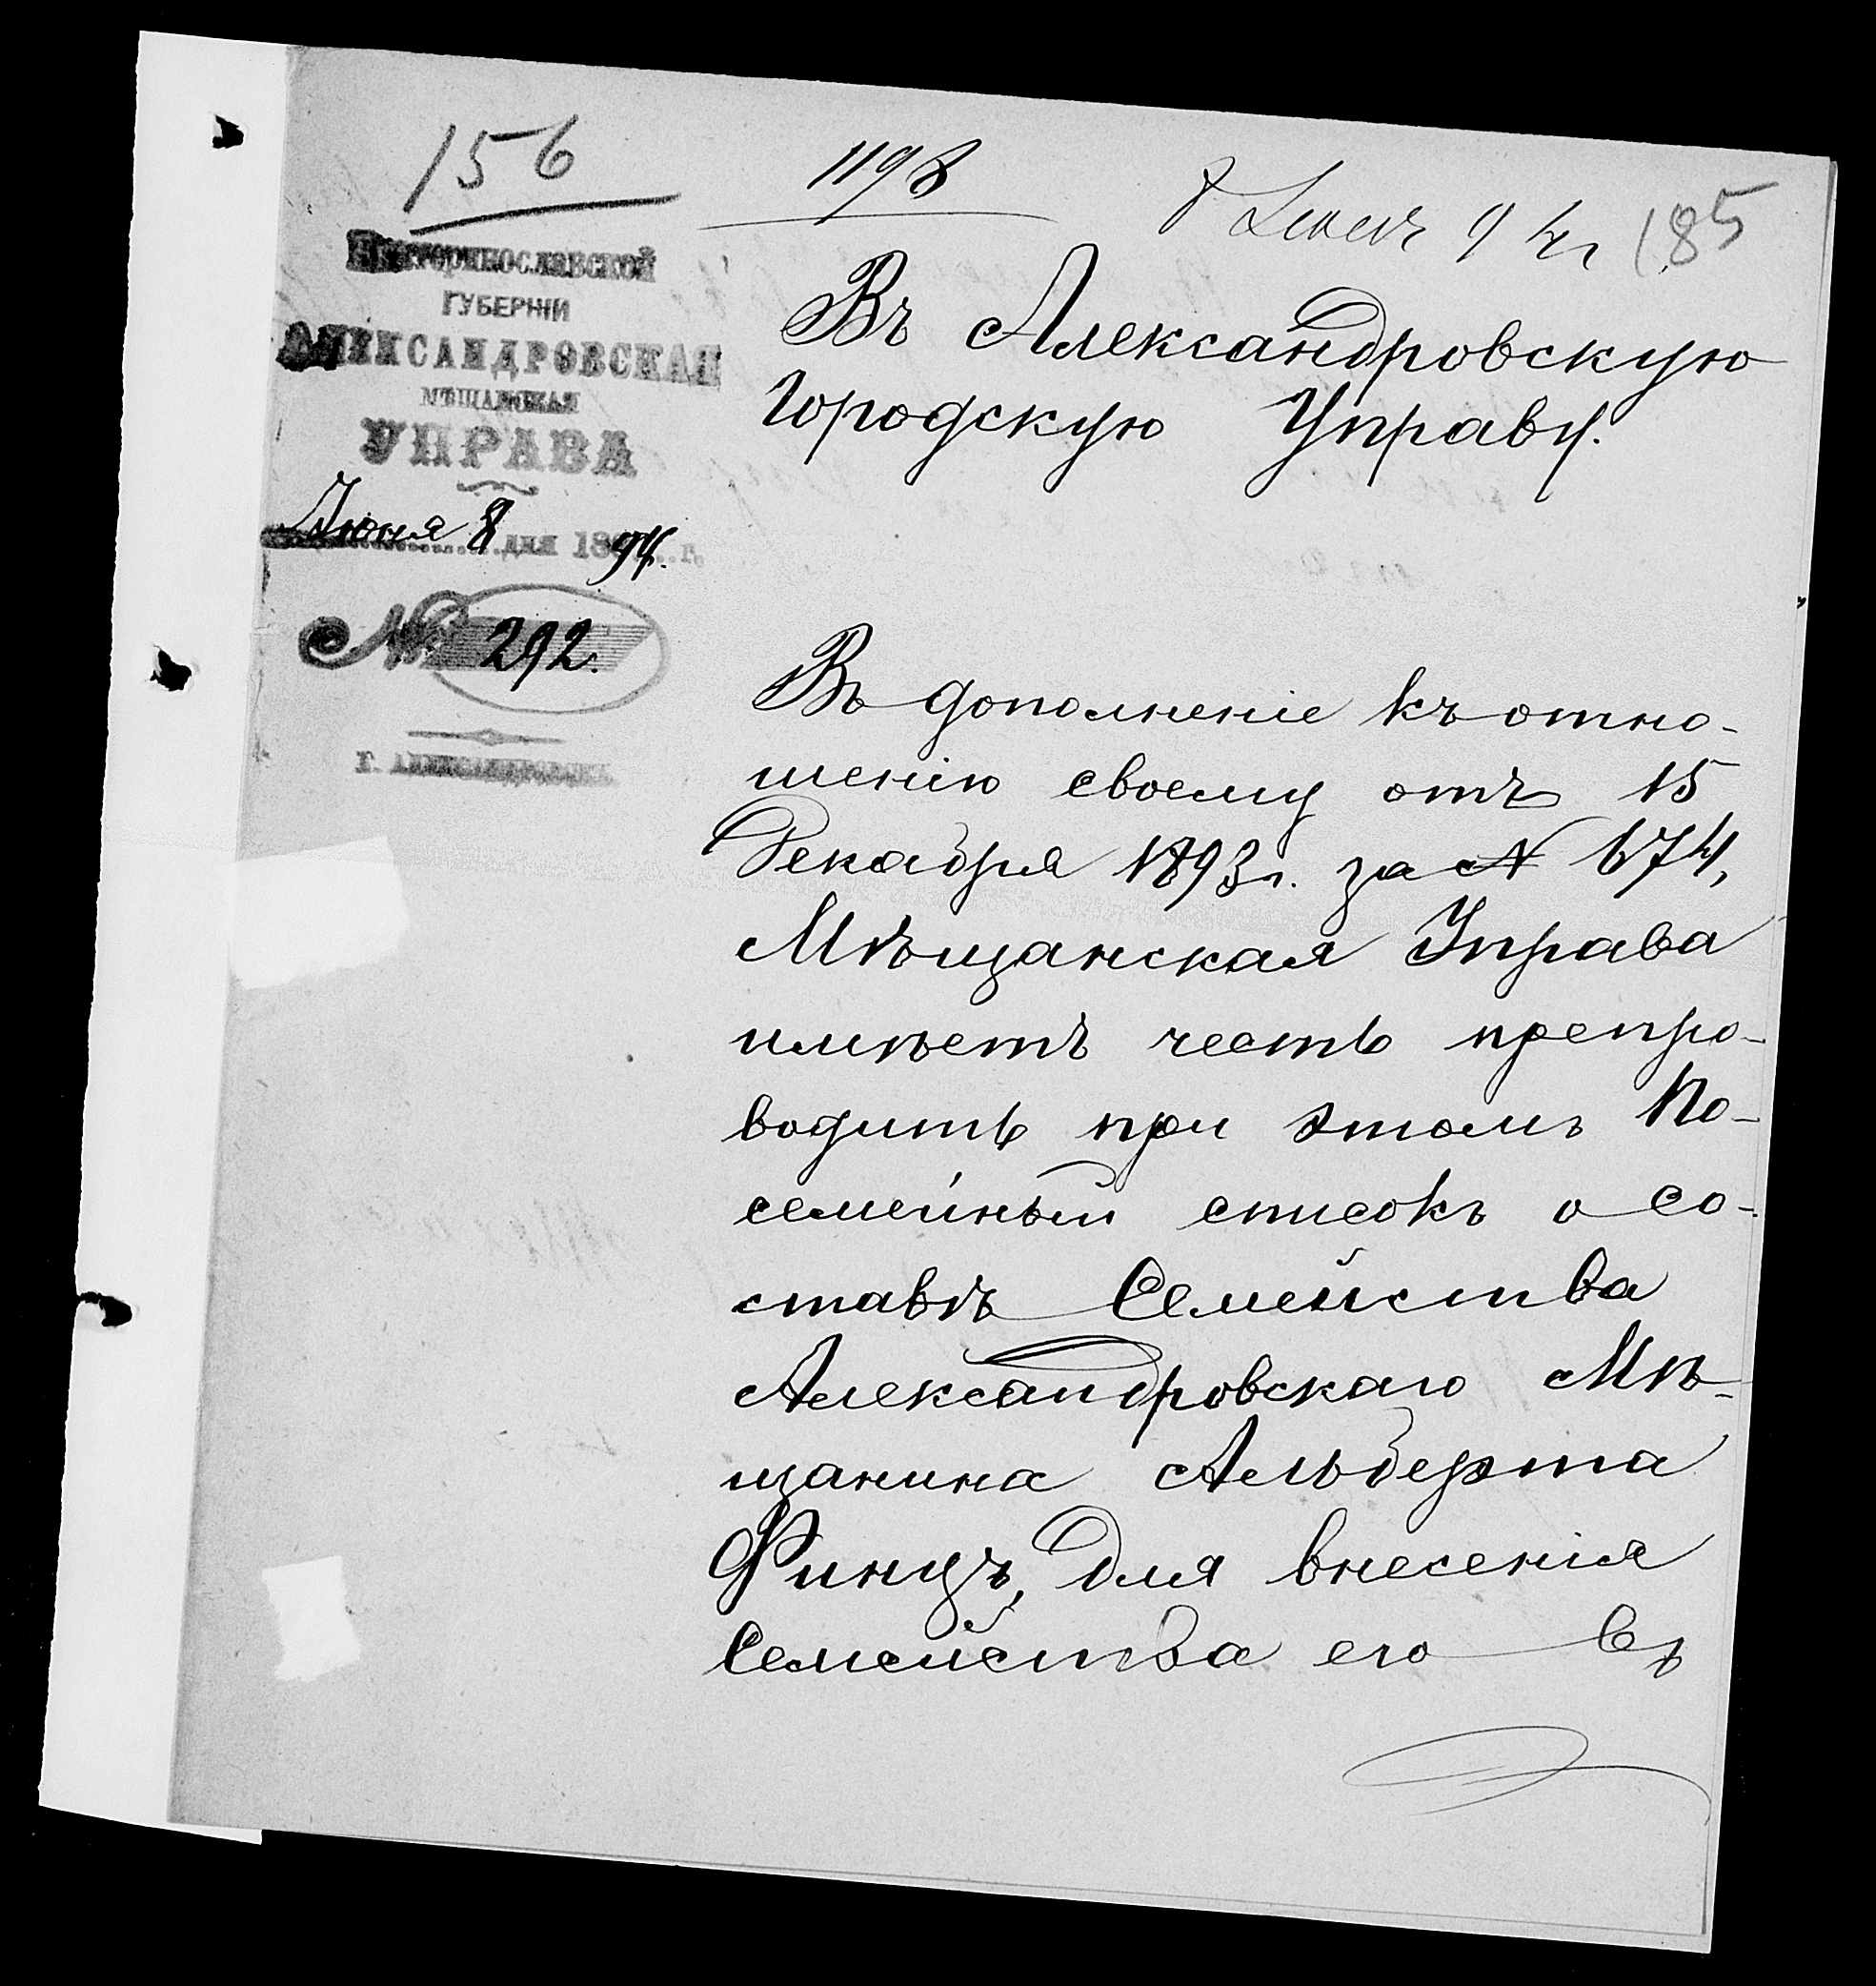 156
1198
8 Июня 94 г
185
Екатеринославской
ГУБЕРНІИ
АЛЕКСАНДРОВСКАЯ
МѢЩАНСКАЯ
УПРАВА
Июня 8 дня 1894. г.
№ 292.
Г. АЛЕКСАНДРОВСКЪ
Въ Александровскую
Городскую Управу.
Въ дополненіе къ отно-
шенію своему отъ 15
Декабря 1893 г. за № 674,
Мѣщанская Управа
имѣетъ честь препро-
водить при этомъ По-
семейный списокъ о со-
ставѣ Семейства
Александровскаго Мѣ-
щанина Альберта
Финцъ, для внесенія
Семейства его въ